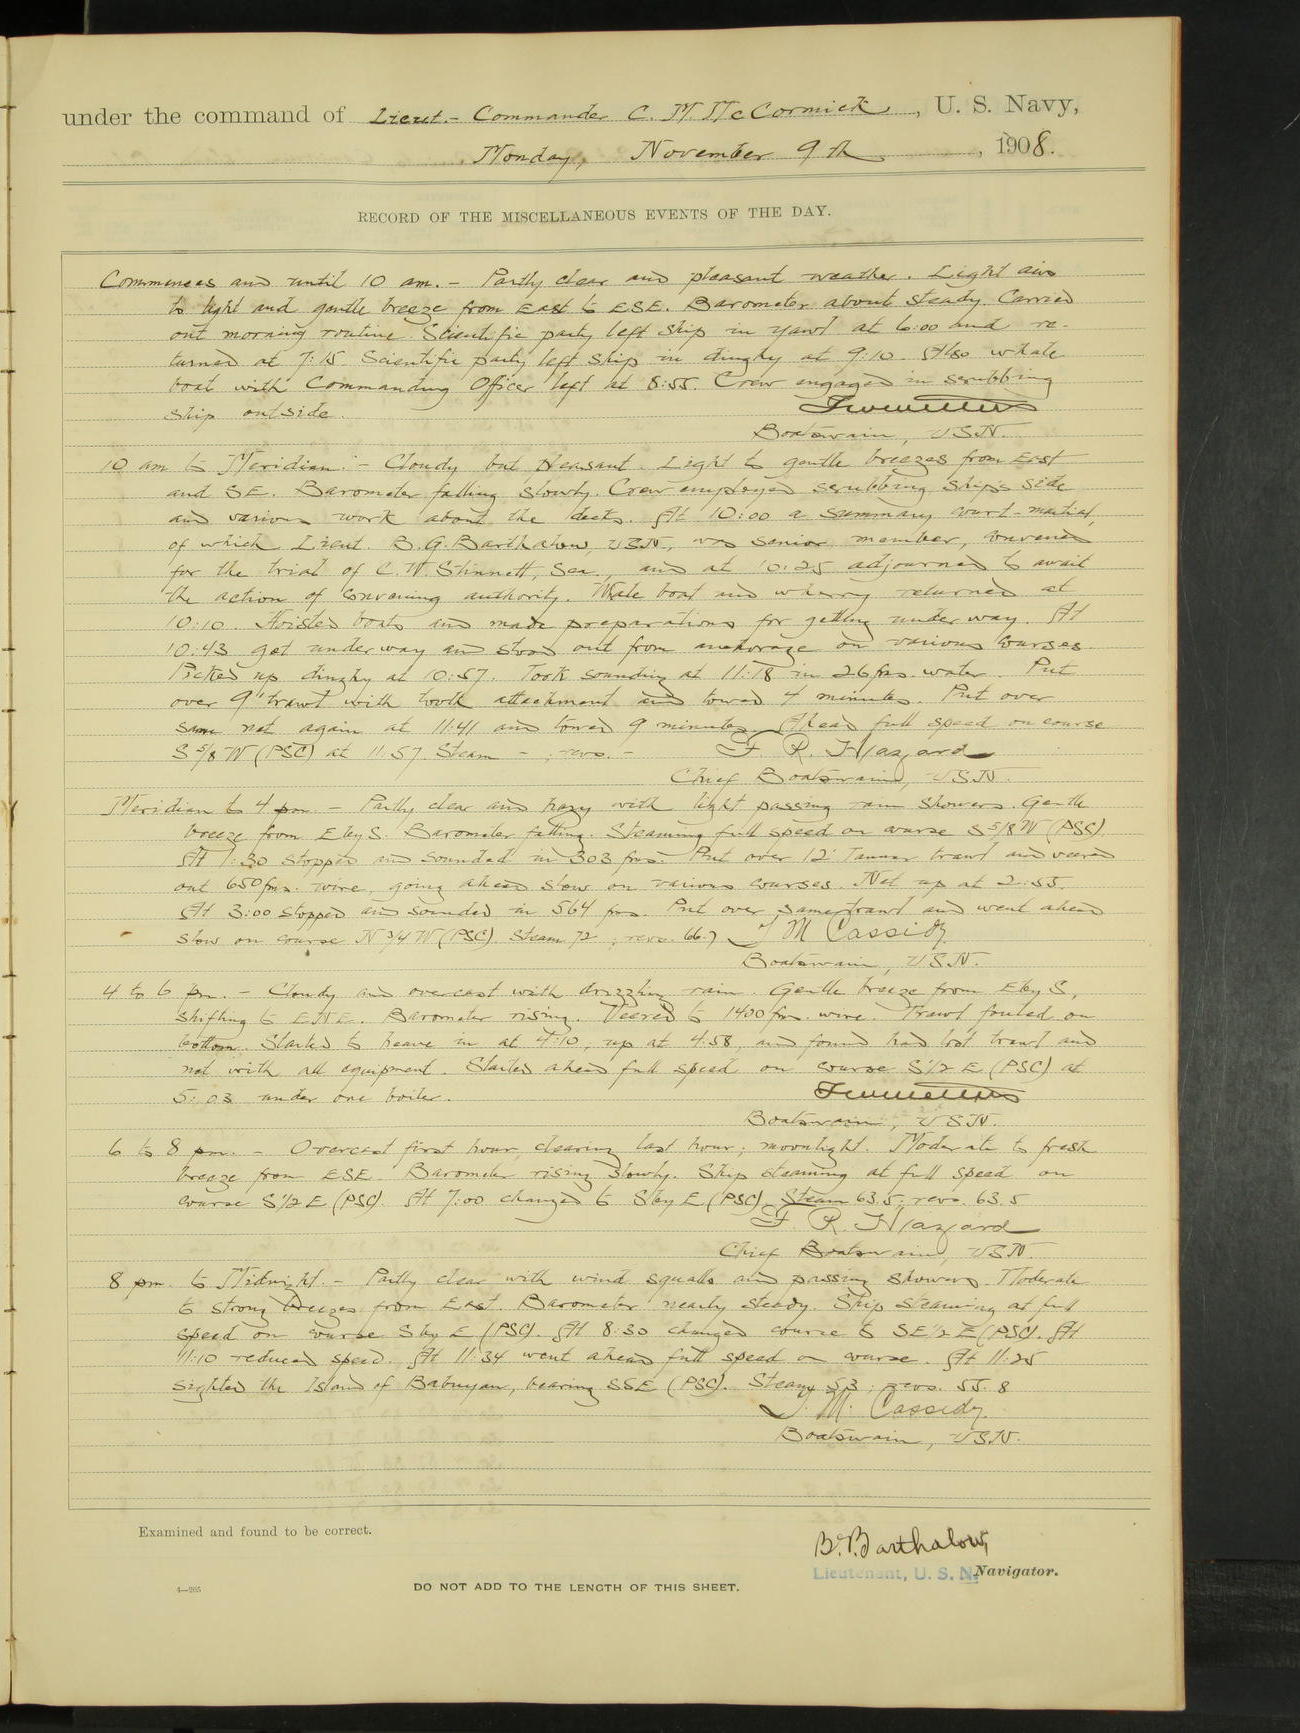 under the command of Lieut.- Commander C. M. McCormick, U. S. Navy,
Monday, November 9th, 1908.
RECORD OF THE MISCELLANEOUS EVENTS OF THE DAY.
Commences and until 10 am. - Partly clear and pleasant weather. Light airs
to light and gentle breeze from East to ESE. Barometer about steady. Carried
out morning routine. Scientific party left ship in yawl at 6:00 and re-
turned at 7:15 Scientific party left ship in dinghy at 9:10. Also whale
boat with Commanding Officer left at 8:55. Crew engaged in scrubbing
ship outside.
Boatswain, USN.
10 am to Meridian: - Cloudy but pleasant. Light to gentle breezes from East
and SE. Barometer falling slowly. Crew employed scrubbing ship's side
and various work about the decks. At 10:00 a summary court-martial,
of which Lieut. B.G. Barthalow, USN, was senior member, convened
for the trial of C.W. Stinnett, Sea., and at 10:25 adjourned to await
the action of convening authority. Wale boat and wherry returned at
10:10. Hoisted boats and made preparations for getting under way. At
10:43 got underway and stood out from anchorage on various courses.
Picked up dinghy at 10:57. Took sounding at 11:18 in 26 fms. water. Put
over 9' trawl with attachment and towed 4 minutes. Put over
same net again at 11:41 and towed 9 minutes. Ahead full speed on course
S 5/8 W (PSC) at 11:57. Steam - ; revs. -
F. R. Hazard
Chief Boatswain, USN.
Meridian to 4 pm. - Partly clear and hazy with light passing rain showers. Gentle
breeze from E by S. Barometer falling. Steaming full speed on course S 5/8 W (PSC)
At 1:30 stopped and sounded in 303 fms. Put over 12' Tanner trawl and veered
out 650 fms. wire, going ahead slow on various courses. Net up at 2:55.
At 3:00 stopped and sounded in 564 fms. Put over same trawl and went ahead
slow on course N 3/4 W (PSC). Steam 72 ; revs. 66.7
T M Cassidy
Boatswain, USN.
4 to 6 pm. - Cloudy and overcast with drizzling rain. Gentle breeze from E by S,
shifting to ENE. Barometer rising. Veered to 1400 fms. wire. Trawl fouled on
bottom. Started to heave in at 4:10, up at 4:58, and found had lost trawl and
net with all equipment. Started ahead full speed on course S 1/2 E (PSC) at
5:03 under one boiler.
Boatswain, USN.
6 to 8 pm. - Overcast first hour, clearing last hour; moonlight. Moderate to fresh
breeze from ESE. Barometer rising slowly. Ship steaming at full speed on
course S 1/2 E (PSC). At 7:00 changed to S by E (PSC). Steam 63.5; revs. 63.5
F. R. Hazard
Chief Boatswain, USN.
8 pm. to Midnight. - Partly clear with wind squalls and passing showers. Moderate
to strong breezes from East. Barometer nearly steady. Ship steaming at full
speed on course S by E (PSC). At 8:30 changed course to SE 1/2 E (PSC). At
11:10 reduced speed. At 11:34 went ahead full speed on course. At 11:25
sighted the Island of Babuyan, bearing SSE (PSC). Steam 53 ; revs. 55.8
T. M. Cassidy
Boatswain, USN.
Examined and found to be correct.
B.G. Barthalow,
Lieutenant, U. S. N. Navigator.
4—265
DO NOT ADD TO THE LENGTH OF THIS SHEET.